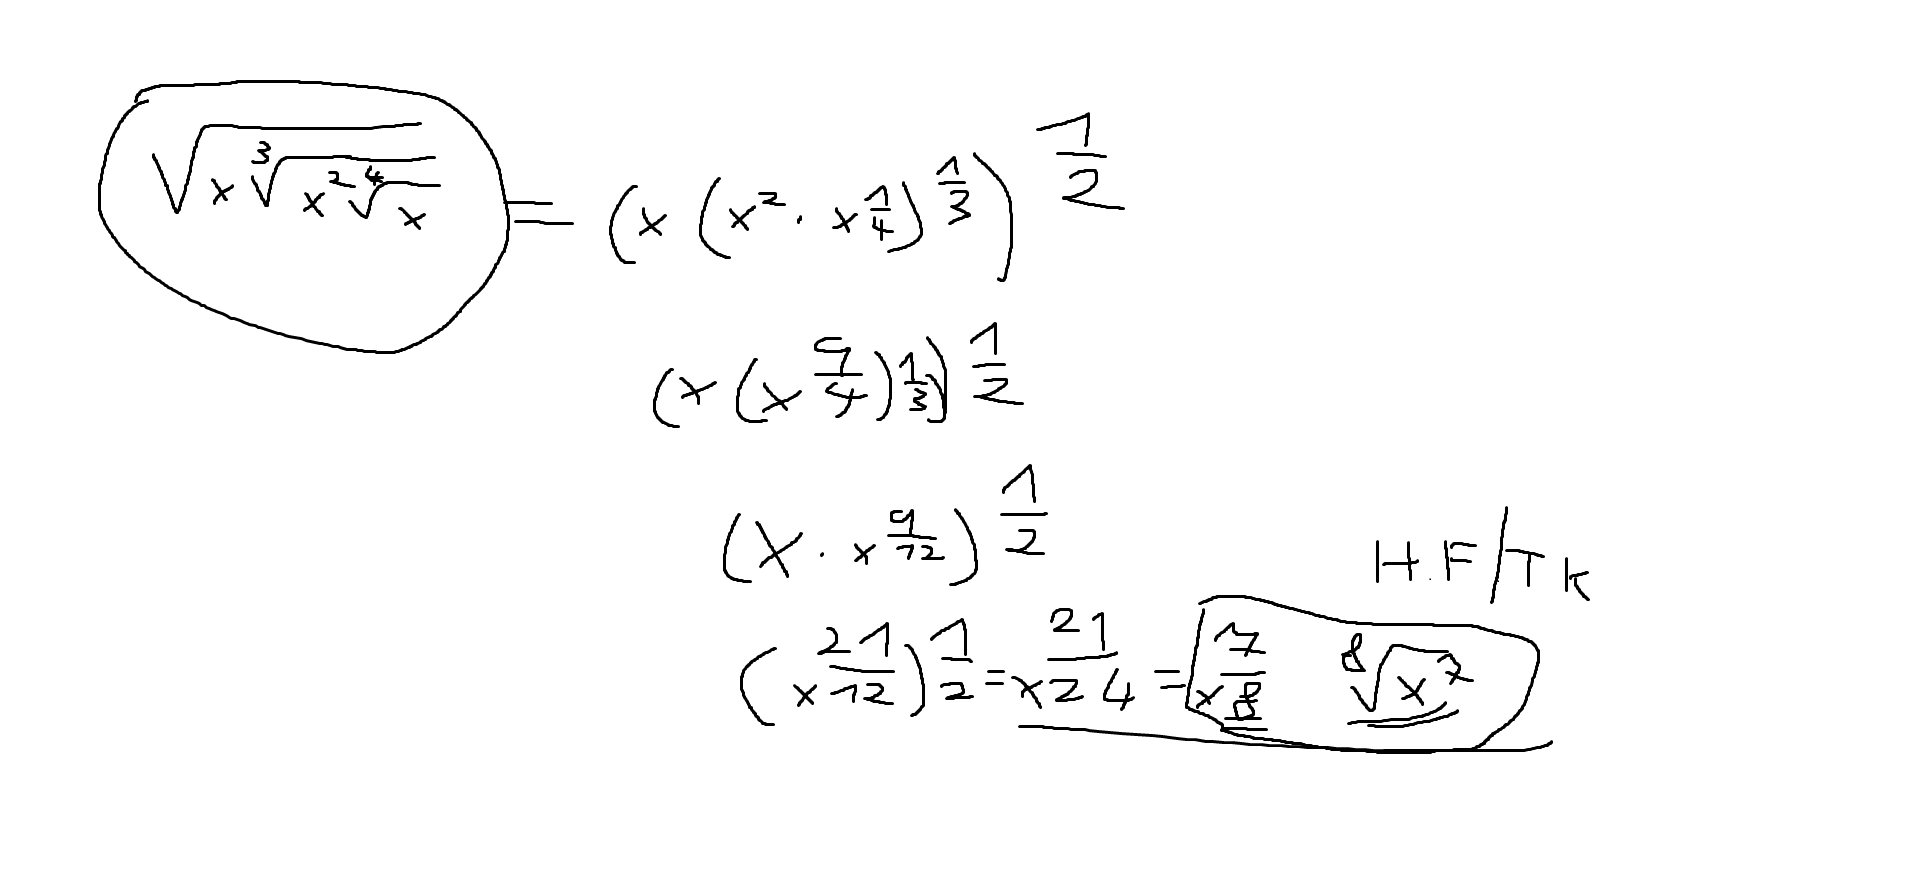 √(x ∛(x² ∜x)) = (x (x² · x^(1/4))^(1/3))^(1/2)
(x (x^(9/4))^(1/3))^(1/2)
(x · x^(9/12))^(1/2)
H.F/TK
(x^(21/12))^(1/2) = x^(21/24) = x^(7/8) ⁸√(x⁷)